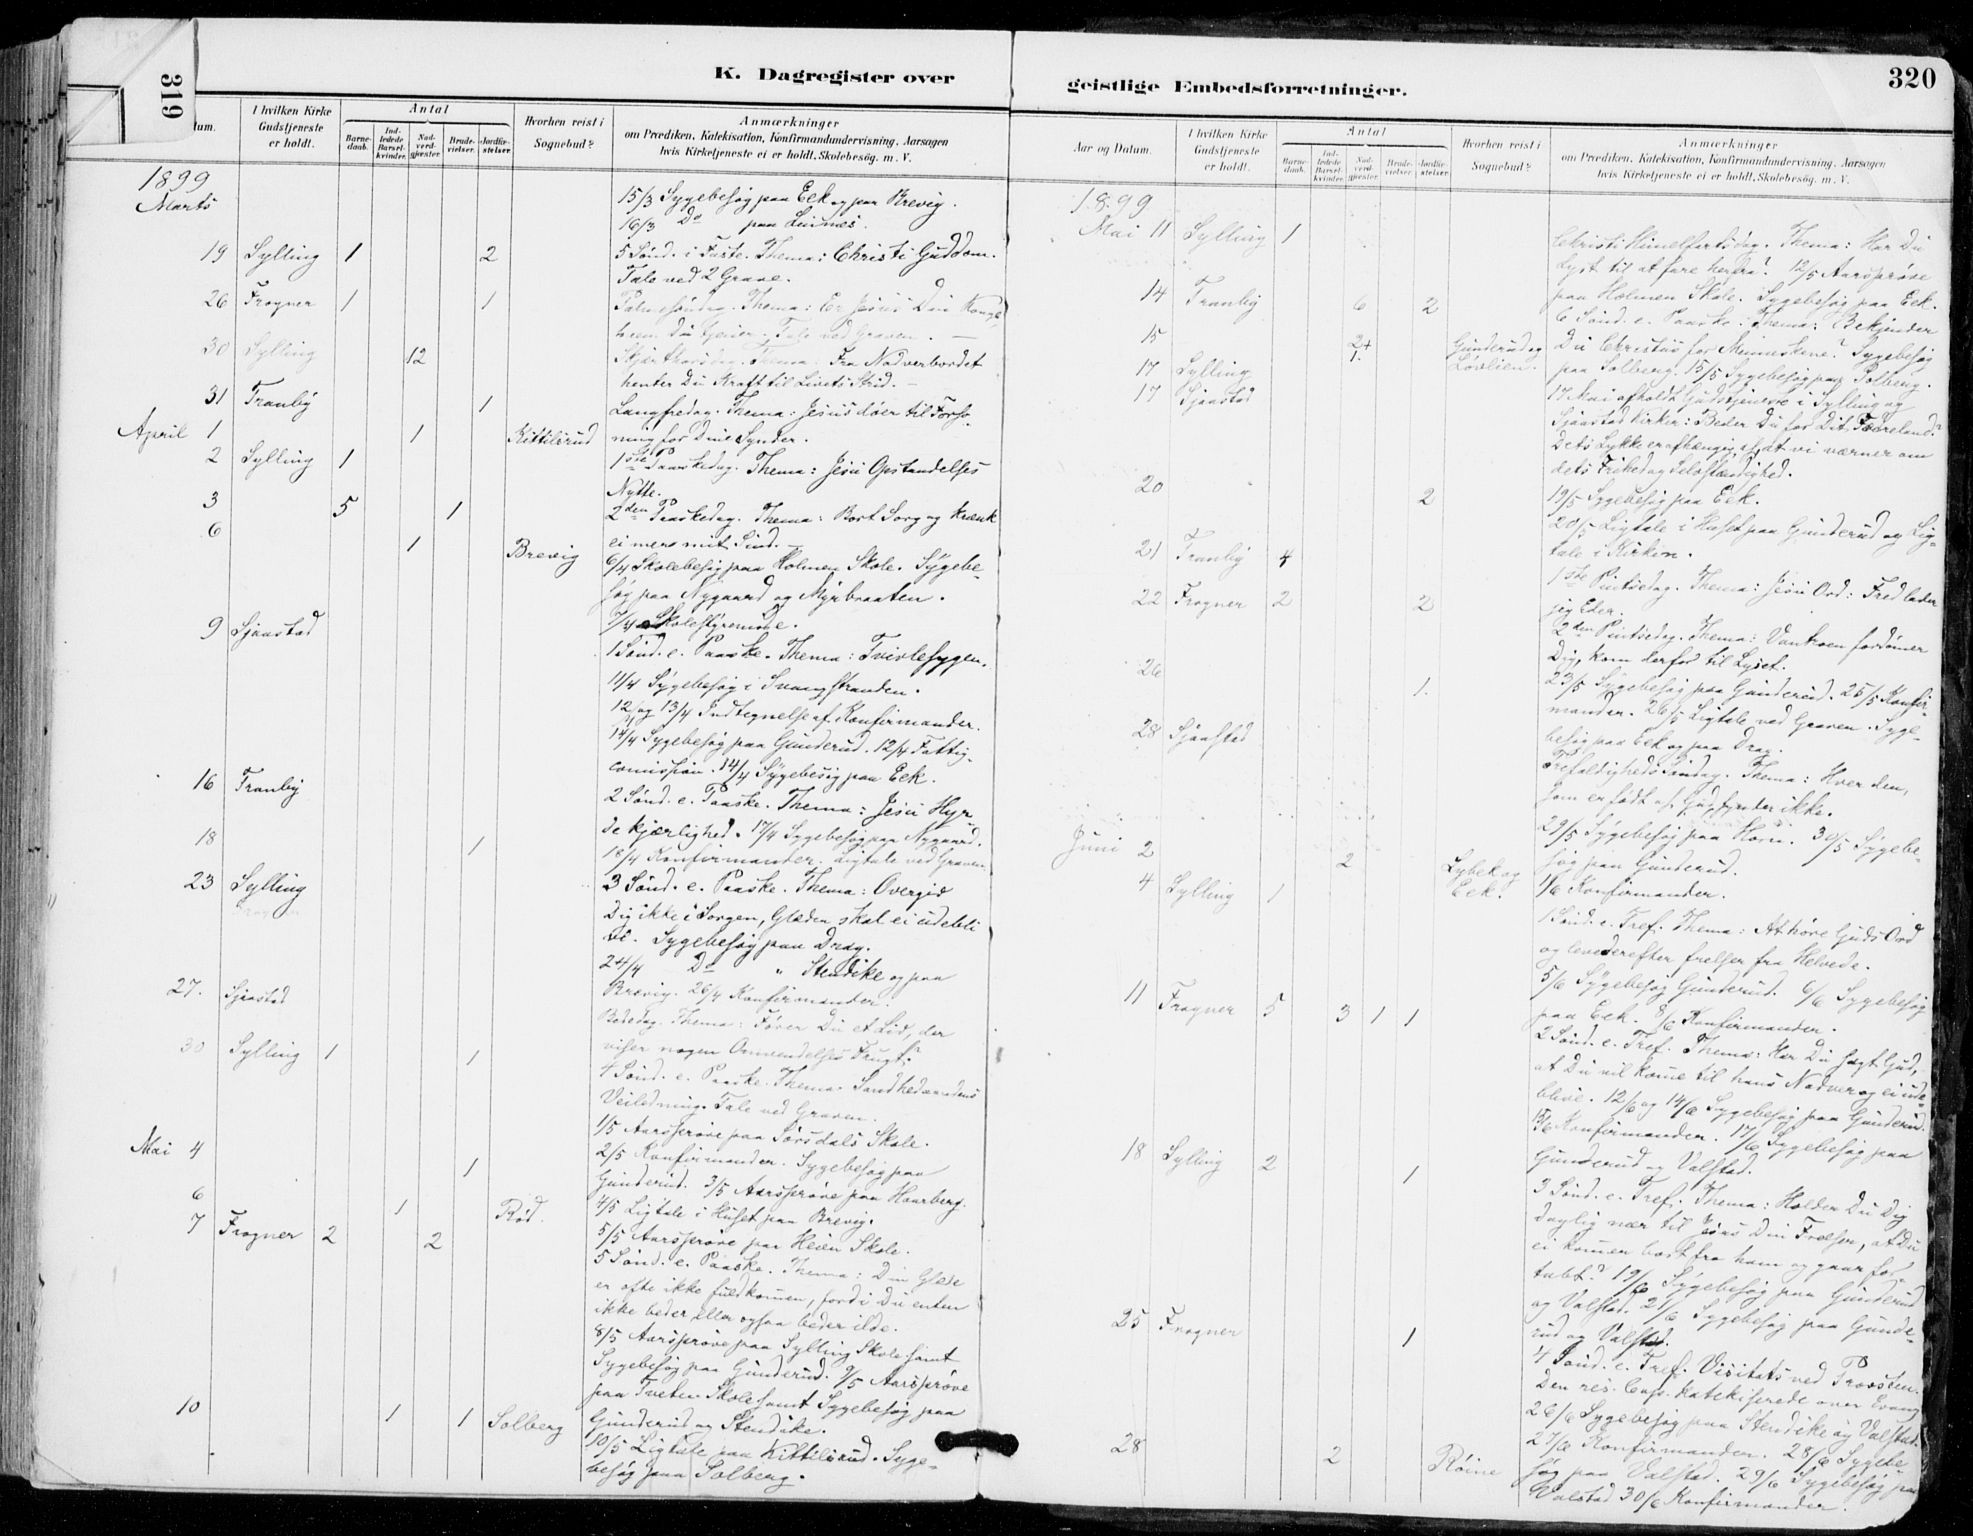 319
K. Dagregister over
um.
I hvilken Kirke Gudstjeneste er holdt.
Antal
Barne-daab.
Ind-ledede Barsel-kvinder.
Nad-verd-gjæster
Brude-vielser.
Jordfæ-stelser
Hvorhen reist i Sognebud?
Anmærkninger
om Prædiken, Katekisation, Konfirmandundervisning, Aarsagen
hvis Kirketjeneste ei er holdt, Skolebesøg. m. V.
1899
Marts
15/3 Sygebesøg paa Eek og paa Brevig.
16/3 Do paa Linnes.
19 Sylling 1 2 5 Sønd. i Faste. Thema: Christi Guddom.
Tale ved 2 Grave.
26 Frogner 1 1 Palmesøndag. Thema: Er Jesus Din Konge
hvem Du tjener. Tale ved Graven.
30 Sylling 12 Skjærthorsdag. Thema: Fra Nadverbordet
henter Du Kraft til Livets Strid.
31 Tranby 1 Langfredag. Thema: Jesus døer til Forso-
April 1 1 Kittilsrud ning for Dine Synder.
2 Sylling 1 1ste Paaskedag. Thema: Jesu Opstandelses
Nytte.
3 5 1 2den Paaskedag. Thema: Bort Sorg og krænk
ei mere mit Sind.
6 1 Brevig 6/4 Skolebesøg paa Holmen Skole. Sygebe-
søg paa Nygaard og Myrbraaten.
7/4 Skolestyremøde.
9 Sjaastad 1 Sønd. e. Paaske. Thema: Tvivlesygen.
11/4 Sygebesøg i Svangstranden.
12/4 og 13/4 Indtegnelse af Konfirmander.
14/4 Sygebesøg paa Gunderud. 12/4 Fattig-
comission. 14/4 Sygebesøg paa Eek.
16 Tranby 2 Sønd. e. Paaske. Thema: Jesu Hyr-
dekjærlighed. 17/4 Sygebesøg paa Nygaard.
18 1 18/4 Konfirmander. Ligtale ved Graven.
23 Sylling 3 Sønd. e. Paaske. Thema: Overgiv
Dig ikke i Sorgen, Glæden skal ei udebli
ve. Sygebesøg paa Drag.
24/4 Do " Stendike og paa
27. Sjaastad Brevig. 26/4 Konfirmander.
Bededag. Thema: Fører Du et Liv, der
viser nogen Omvendelses Frugt?
30 Sylling 1 1 4 Sønd. e. Paaske. Thema. Sandhedsaandens
Veiledning. Tale ved Graven.
1/5 Aarsprøve paa Sørsdals Skole.
Mai 4 1 2/5 Konfirmander. Sygebesøg paa
Gunderud. 3/5 Aarsprøve paa Haarberg.
6 1 Rød. 4/5 Ligtale i Huset paa Brevig.
7 Frogner 2 2 5/5 Aarsprøve paa Heien Skole.
5 Sønd. e. Paaske. Thema: Din Glæde
er ofte ikke fuldkommen, fordi Du enten
ikke beder eller ogsaa beder ilde.
8/5 Aarsprøve paa Sylling Skole samt
Sygebesøg paa Gunderud. 9/5 Aarsprøve
paa Tveten Skole samt Sygebesøg paa
10 1 1 Solberg Gunderud og Stendike.
10/5 Ligtale paa Kittilsrud. Syge-
besøg paa Solberg.
320
geistlige Embedsforretninger.
Aar og Datum.
I hvilken Kirke Gudstjeneste er holdt.
Antal
Barne-daab.
Ind-ledede Barsel-kvinder.
Nad-verd-gjæster.
Brude-vielser.
Jordfæ-stelser
Hvorhen reist i Sognebud?
Anmærkninger
om Prædiken, Katekisation, Konfirmandundervisning, Aarsagen
hvis Kirketjeneste ei er holdt, Skolebesøg. m. V.
1899
Mai 11 Sylling 1 Christi Himelfartsdag. Thema: Har Du
Lyst til at fare herfra? 12/5 Aarsprøve
paa Holmen Skole. Sygebesøg paa Eek.
14 Tranby 6 2 6 Sønd. e. Paaske. Thema: Bekjender
15 2+1. Gunderud og Løvlien. Du Christus for Menneskene? Sygebesøg
paa Solberg. 15/5 Sygebesøg paa Solberg.
17 Sylling
17 Sjaastad 17 Mai afholdt Gudstjeneste i Sylling og
Sjaastad Kirker: Beder Du for Dit Fædreland?
Dets Lykke er afhængig af, at vi værner om
dets Frihed og Selvstændighed.
20 2 19/5 Sygebesøg paa Eek.
20/5 Ligtale i Huset paa Gunderud og Lig-
tale i Kirken.
21 Tranby 4 1ste Pintsedag. Thema: Jesu Ord: Fred lader
jeg Eder.
22 Frogner 2 2 2den Pintsedag. Thema: Vantroen fordømer
Dig, kom derfor til Lyset.
26 1. 23/5 Sygebesøg paa Gunderud. 25/5 Konfir-
mander. 26/5 Ligtale ved Graven. Syge-
besøg paa Eek og paa Drag.
28 Sjaastad Trefaldigheds Søndag. Thema: Hver den,
som er født af Gud synder ikke.
29/5 Sygebesøg paa Horn. 30/5 Sygebe-
Juni 2 2 Lybek og Eek. søg paa Gunderud.
1/6 Konfirmander.
4 Sylling 1 1 Sønd. e. Tref. Thema: At høre Guds Ord
og leve derefter frelser fra Helvede.
5/6 Sygebesøg Gunderud. 6/6 Sygebesøg
paa Eek. 8/6 Konfirmander.
11 Frogner 5 3 1 1 2 Sønd. e. Tref. Thema: Har Du sagt Gud,
at Du vil kome til hans Nadver og ei ude-
blive. 12/6 og 14/6 Sygebesøg paa Gunderud.
15/6 Konfirmander. 17/6 Sygebesøg paa
Gunderud og Valstad.
18 Sylling 2 1 3 Sønd. e. Tref. Thema: Holder Du Dig
daglig nær til Jesus Din Frelser, at Du
ei kommer bort fra ham og gaar for-
tabt? 19/6 Sygebesøg paa Gunderud
og Valstad. 21/6 Sygebesøg paa Gunde-
rud og Valstad.
25 Frogner 1 4 Sønd. e. Tref. Visitats ved Provsten.
Den res. Cap. katekiserede over Evang.
26/6 Sygebesøg paa Stendike og Valstad.
27/6 Konfirmander. 28/6 Sygebe-
28 2 Røine søg paa Valstad. 29/6 Sygebesøg paa
Valstad 30/6 Konfirmander.